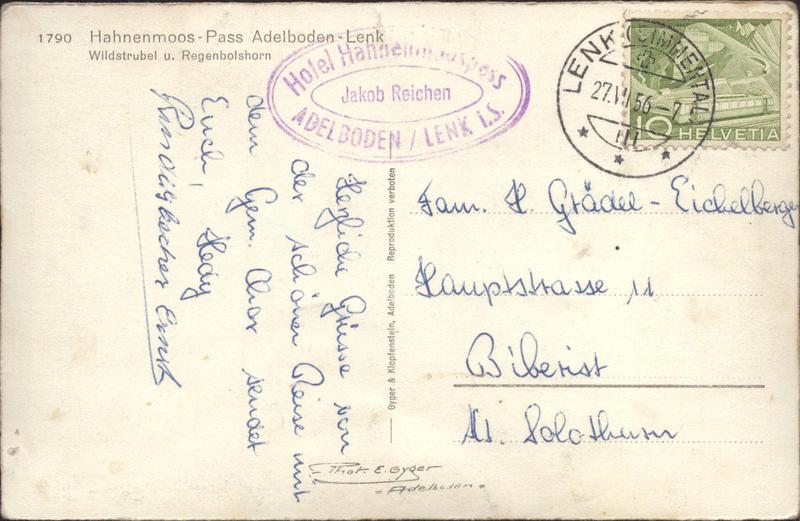 1790 Hahnenmoos-Pass Adelboden-Lenk
Wildstrubel u. Regenbolshorn
Hotel Hahnenmoospass
Jakob Reichen
ADELBODEN / LENK i.S.
LENK (SIMMENTAL)
27.VII.56-7
10 HELVETIA
Herzliche Grüsse von
der schönen Reise mit
dem Gem. Chor sendet
Euch, Hedy
Ernst
Gyger & Klopfenstein, Adelboden Reproduktion verboten
Fam. H. Grädel-Eichelberger
Hauptstrasse 11
Biberist
Kt. Solothurn
Phot. E. Gyger
Adelboden